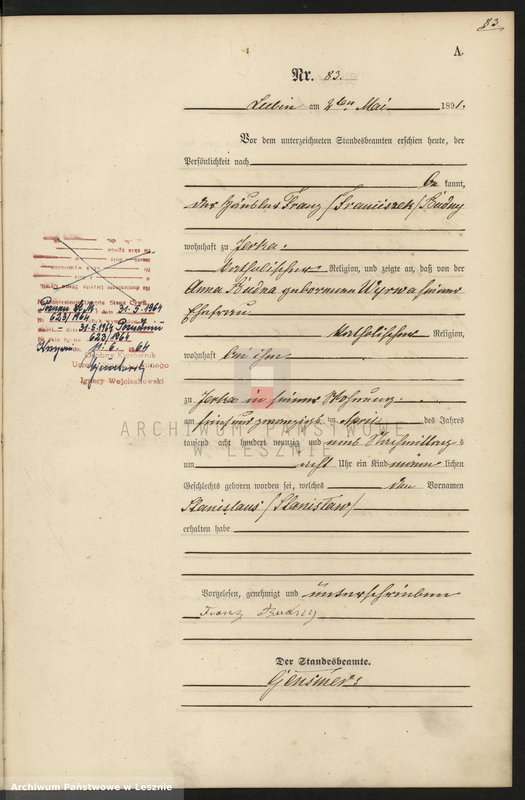 83
A.
Nr. 83.
Lubin am 2ten Mai 1891.
Vor dem unterzeichneten Standesbeamten erschien heute, der
Persönlichkeit nach
be kannt,
der Häusler Franz /Franciszek/ Kudny
wohnhaft zu Jerka.
katholischer Religion, und zeigte an, daß von der
Anna Kudna geborenen Wyrwa seiner
Ehefrau
katholischer Religion,
wohnhaft bei ihm
zu Jerka in seiner Wohnung
am fünfundzwanzigsten April des Jahres
tausend acht hundert neunzig und eins Nachmittags
um acht Uhr ein Kind männlichen
Geschlechts geboren worden sei, welches den Vornamen
Stanislaus /Stanisław/
erhalten habe
Vorgelesen, genehmigt und unterschrieben
Franz Kudny
Der Standesbeamte.
Gensmer
31.5.1964
623/1964
31.5.1964
623/1964
11.6.64
Ignacy Wojciechowski
ARCHIWUM PAŃSTWOWE
W LESZNIE
Archiwum Państwowe w Lesznie